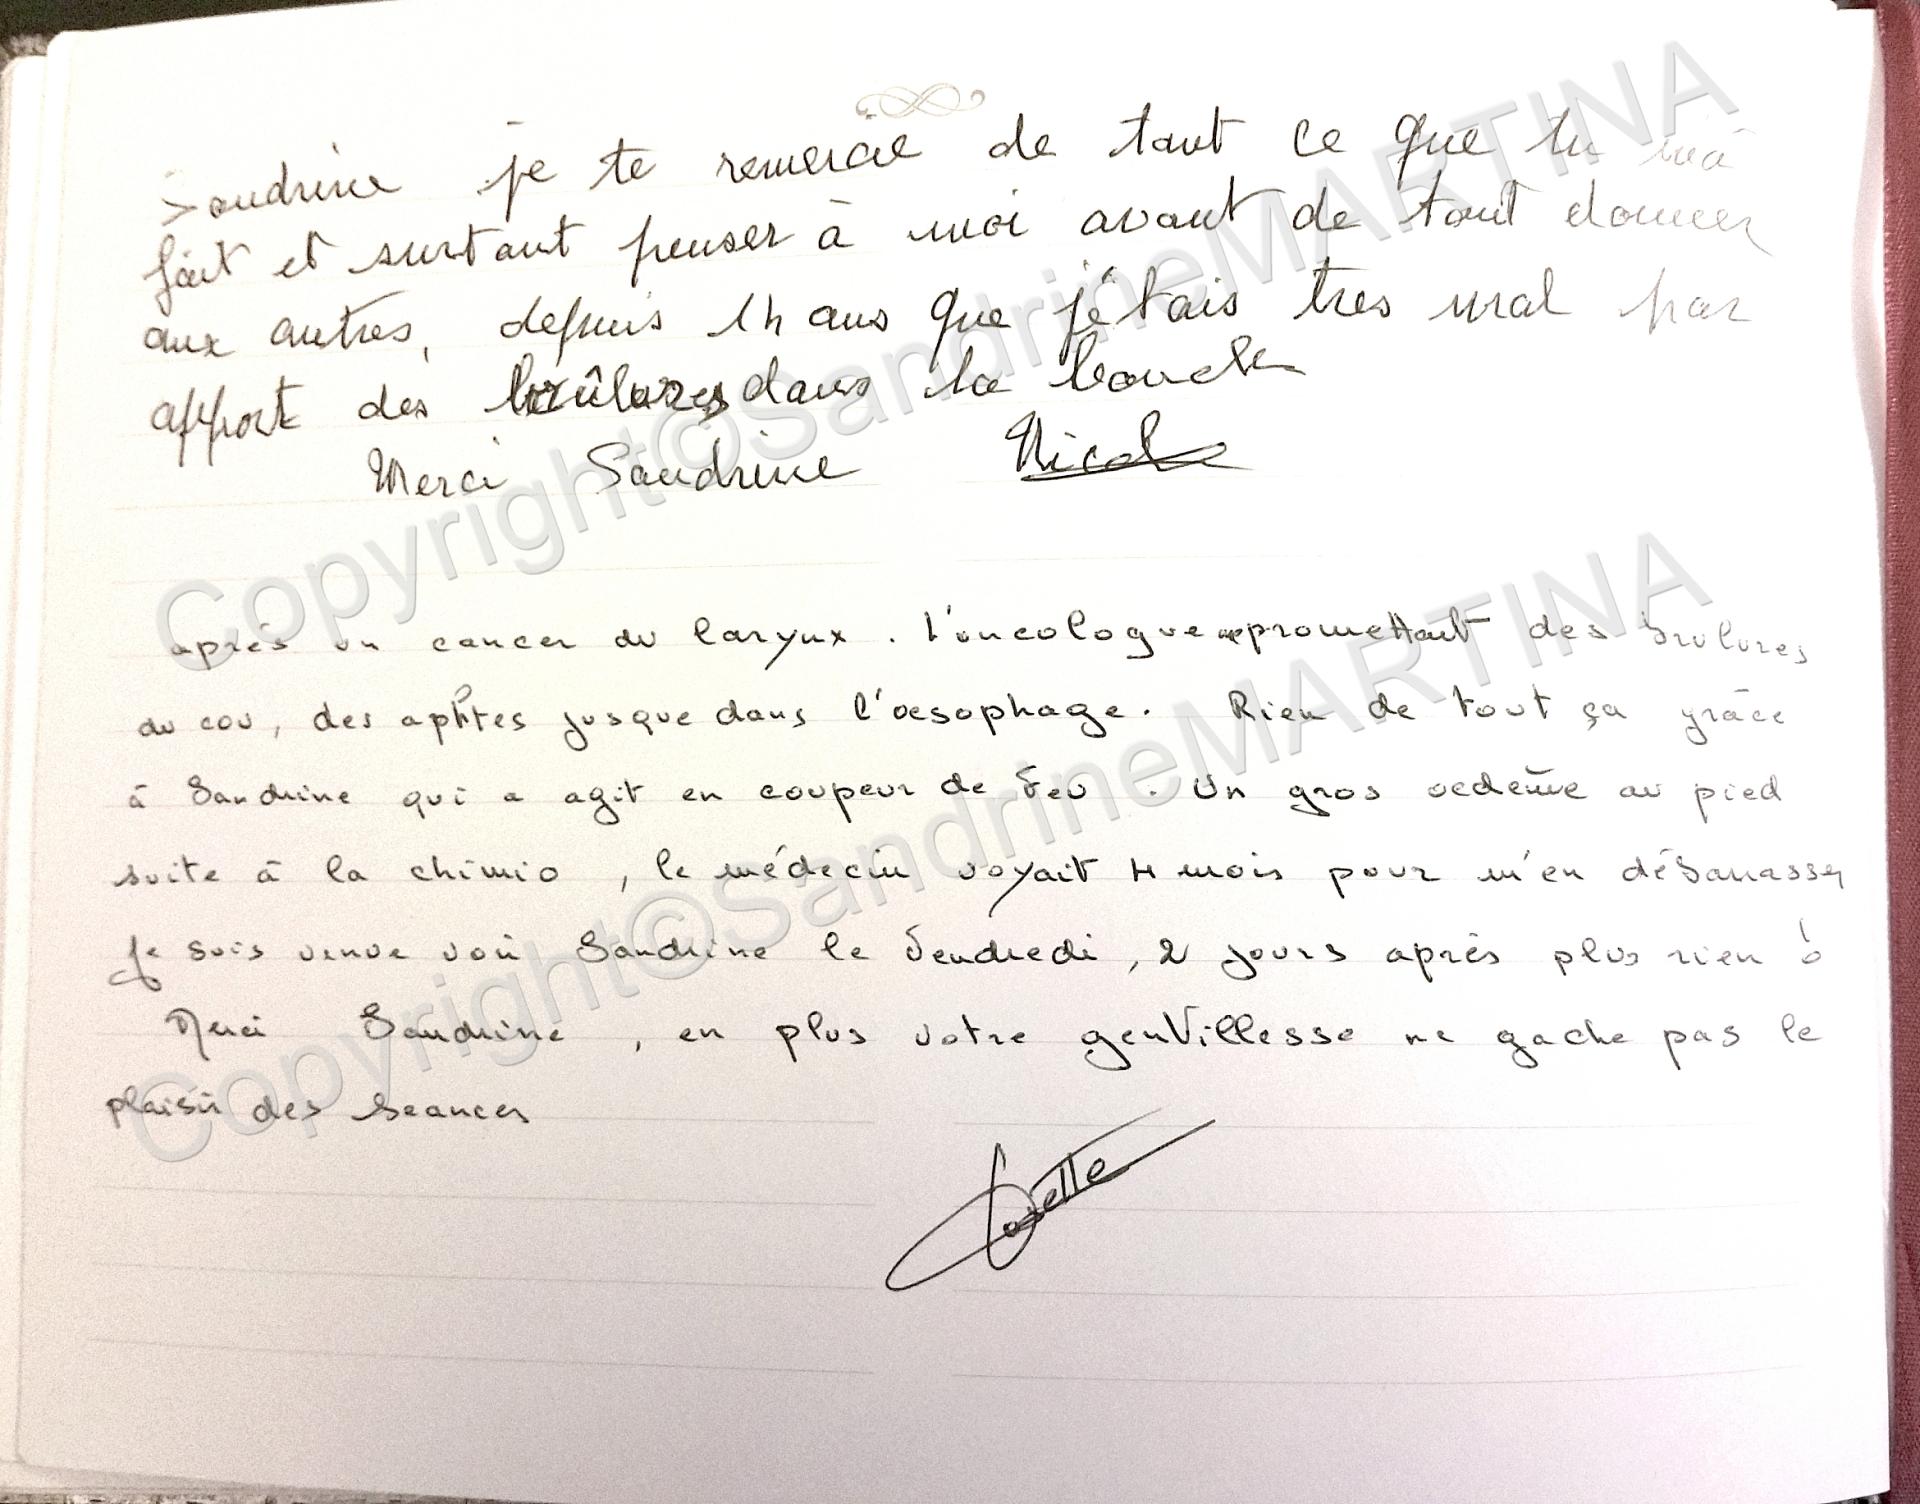 Sandrine je te remercie de tout ce que tu m'a
fait et surtout penser à moi avant de tout donner
aux autres, depuis 14 ans que j'étais tres mal par
apport des brûlures dans la bouche
Merci Sandrine Nicole
après un cancer du larynx. l'oncologue me promettant des brulures
du cou, des aphtes jusque dans l'oesophage. Rien de tout ça grâce
à Sandrine qui a agit en coupeur de feu. Un gros oedème au pied
suite à la chimio, le médecin voyait 4 mois pour m'en débarrasser
Je suis venue voir Sandrine le Vendredi, 2 jours après plus rien
Merci Sandrine, en plus votre gentillesse ne gache pas le
plaisir des seances
Josette
Copyright©SandrineMARTINA
Copyright©SandrineMARTINA